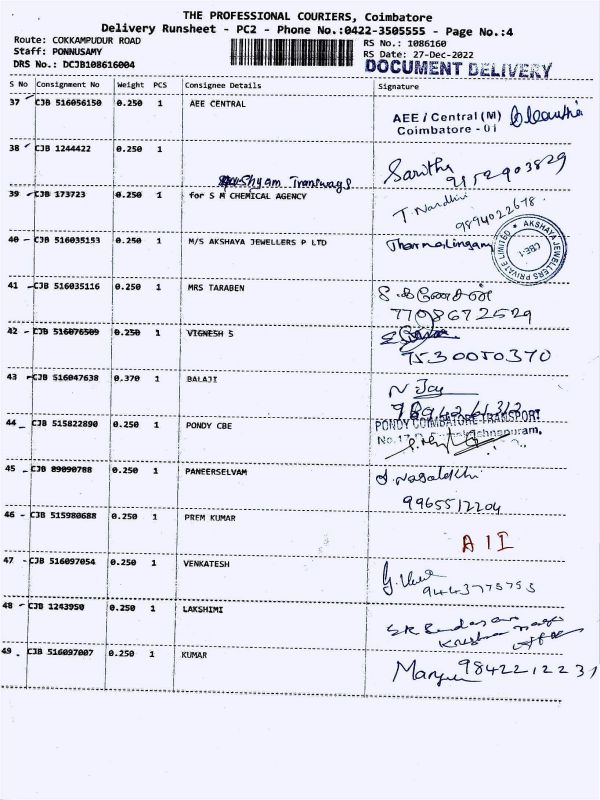 THE PROFESSIONAL COURIERS, Coimbatore
Delivery Runsheet - PC2 - Phone No.:0422-3505555 - Page No.:4
Route: COKKAMPUDUR ROAD
RS No.: 1086160
Staff: PONNUSAMY
RS Date: 27-Dec-2022
DRS No.: DCJB108616004
DOCUMENT DELIVERY
S No Consignment No Weight PCS Consignee Details Signature
37 CJB 516056150 0.250 1 AEE CENTRAL
AEE / Central (M)
Coimbatore - 01
38 CJB 1244422 0.250 1 Saritha
9152903829
Shyam Transways
39 CJB 173723 0.250 1 for S M CHEMICAL AGENCY T Nandhini
9894022678.
40 CJB 516035153 0.250 1 M/S AKSHAYA JEWELLERS P LTD Tharmalingam
AKSHAYA JEWELLERS PRIVATE LIMITED
CBE-1
41 CJB 516035116 0.250 1 MRS TARABEN
7708672529
42 CJB 516076509 0.250 1 VIGNESH S
7530050370
43 CJB 516047638 0.370 1 BALAJI N Jay
PONDY COIMBATORE TRANSPORT
44 CJB 515822890 0.250 1 PONDY CBE No.17
45 CJB 89090788 0.250 1 PANEERSELVAM
9965512204
46 CJB 515980688 0.250 1 PREM KUMAR
A I I
47 CJB 516097054 0.250 1 VENKATESH
9443775755
48 CJB 1243950 0.250 1 LAKSHIMI
49 CJB 516097007 0.250 1 KUMAR 9842212231